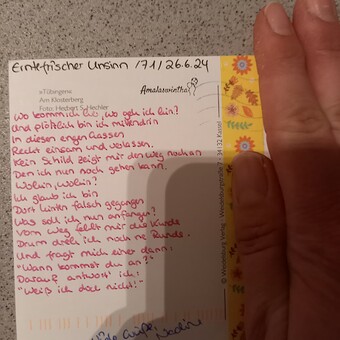 Erntefrischer Unsinn /71/26.6.24
Tübingen:
Am Klosterberg
Foto: Herbert S. Hechler
Amalaswintha
Wo komm ich her, wo geh ich hin?
Und plötzlich bin ich mittendrin
In diesen engen Gassen
Recht einsam und verlassen.
Kein Schild zeigt mir den Weg noch an
Den ich nun noch gehen kann.
Wohin, wohin?
Ich glaub ich bin
Dort hinten falsch gegangen
Was soll ich nun anfangen?
Vom Weg fehlt mir die Kunde
Drum dreh ich noch ne Runde.
Und fragt mich einer dann:
"Wann kommst du an?"
Darauf antwort ich:
"Weiß ich doch nicht!"
Liebe Grüße
Nadin
34132 Kassel